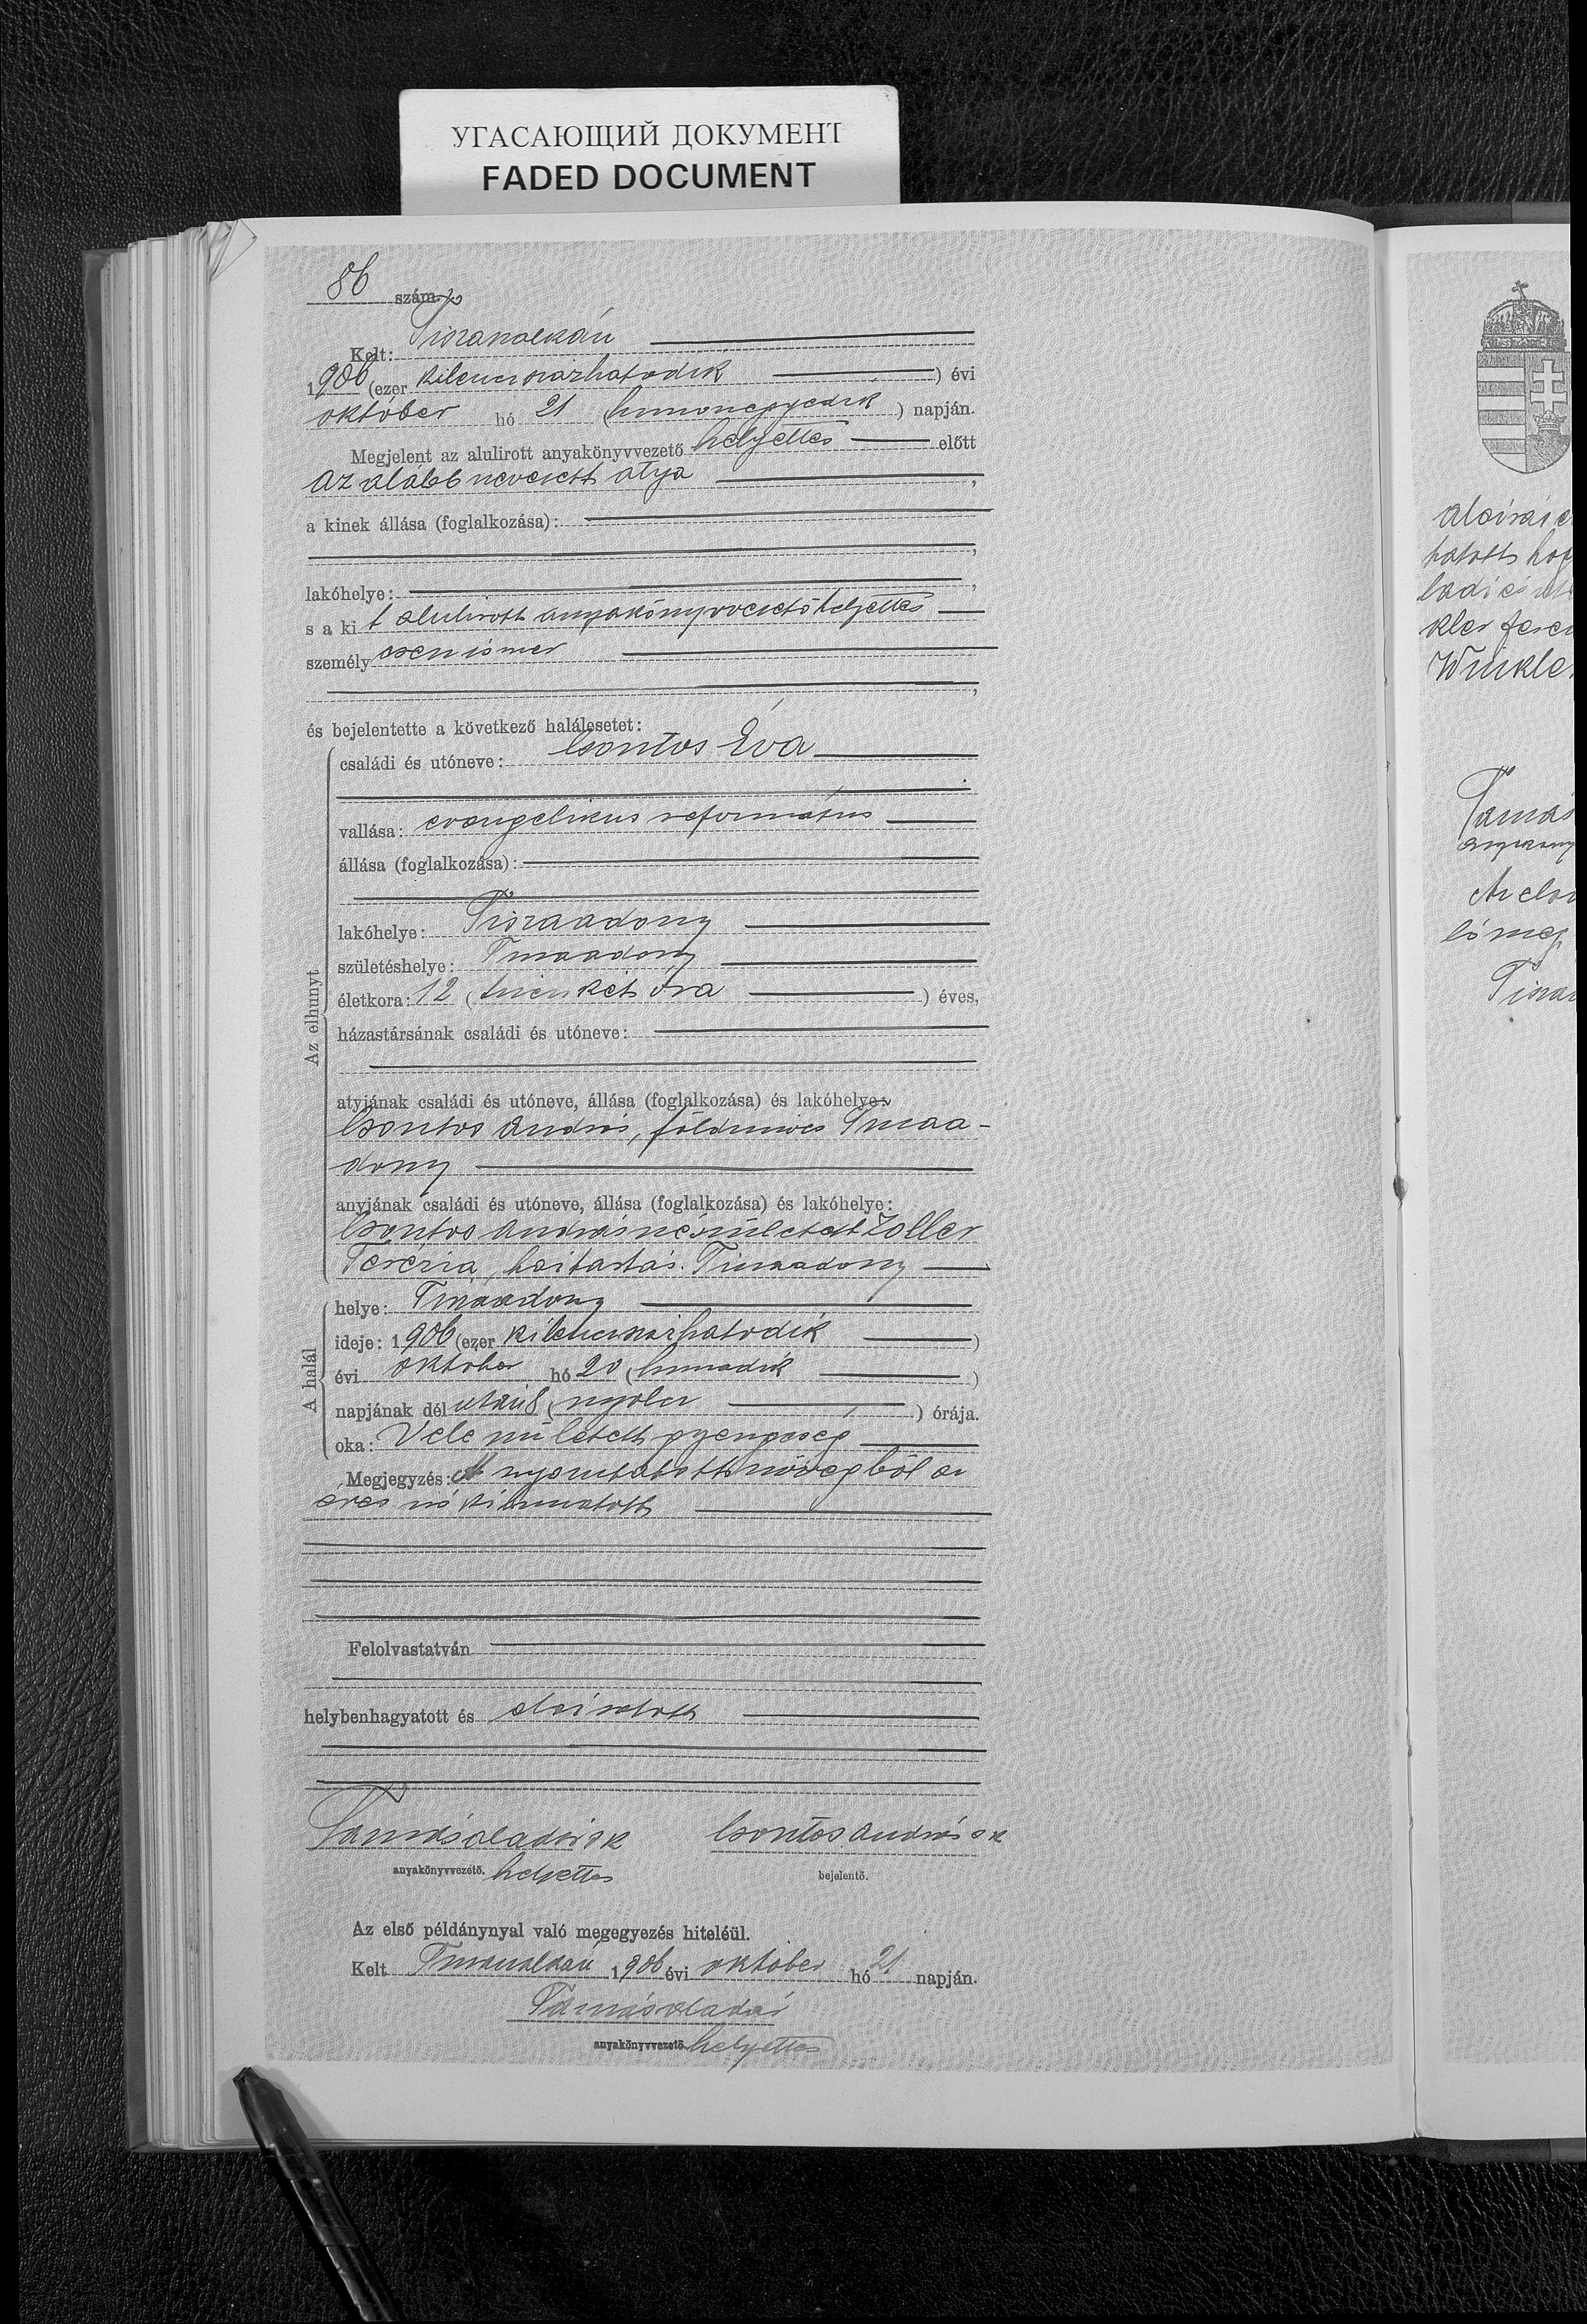 УГАСАЮЩИЙ ДОКУМЕНТ
FADED DOCUMENT
86 szám.
Kelt: Tiszaszalkán
1906 (ezer kilenczszázhatodik ) évi
október hó 21 (huszonegyedik ) napján.
Megjelent az alulirott anyakönyvvezető helyettes előtt
az alább nevezett atya ,
a kinek állása (foglalkozása):
,
lakóhelye: ,
s a ki t alulirott anyakönyvvezető helyettes
személyesen ismer
,
és bejelentette a következő halálesetet:
Az elhunyt
családi és utóneve: Csontos Éva
vallása: evangelikus református
állása (foglalkozása):
lakóhelye: Tiszaadony
születéshelye: Tiszaadony
életkora: 12 (tizenkét óra ) éves,
házastársának családi és utóneve:
atyjának családi és utóneve, állása (foglalkozása) és lakóhelye:
Csontos András, földmives Tiszaa-
dony
anyjának családi és utóneve, állása (foglalkozása) és lakóhelye:
Csontos Andrásné született Zoller
Terézia, háztartás. Tiszaadony
A halál
helye: Tiszaadony
ideje: 1906 (ezer kilenczszázhatodik )
évi október hó 20 (huszadik )
napjának dél után 8 (nyolcz ) órája.
oka: Vele született gyengeség
Megjegyzés: A nyomtatott szövegből az
éves szó kihuzatott
Felolvastatván
helybenhagyatott és aláiratott
Tamás Aladár sk Csontos András sk
anyakönyvvezető. helyettes bejelentő.
Az első példánynyal való megegyezés hiteléül.
Kelt Tiszaszalkán 1906 évi október hó 21 napján.
Tamás Aladár
anyakönyvvezető helyettes
Tamás